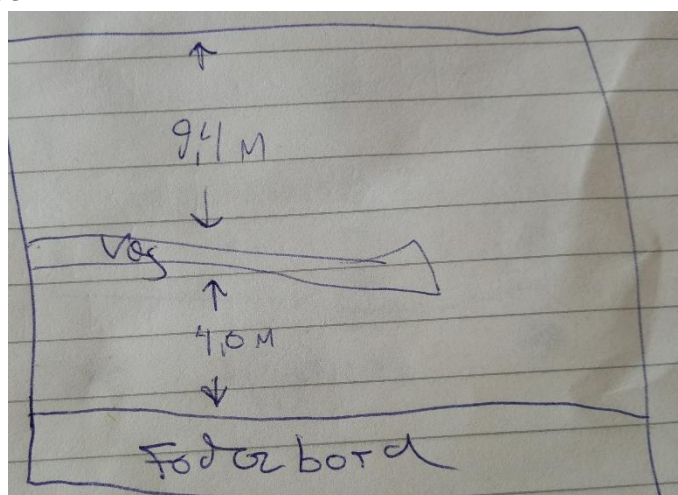 9,4 M
Væg
4,0 M
Foderbord